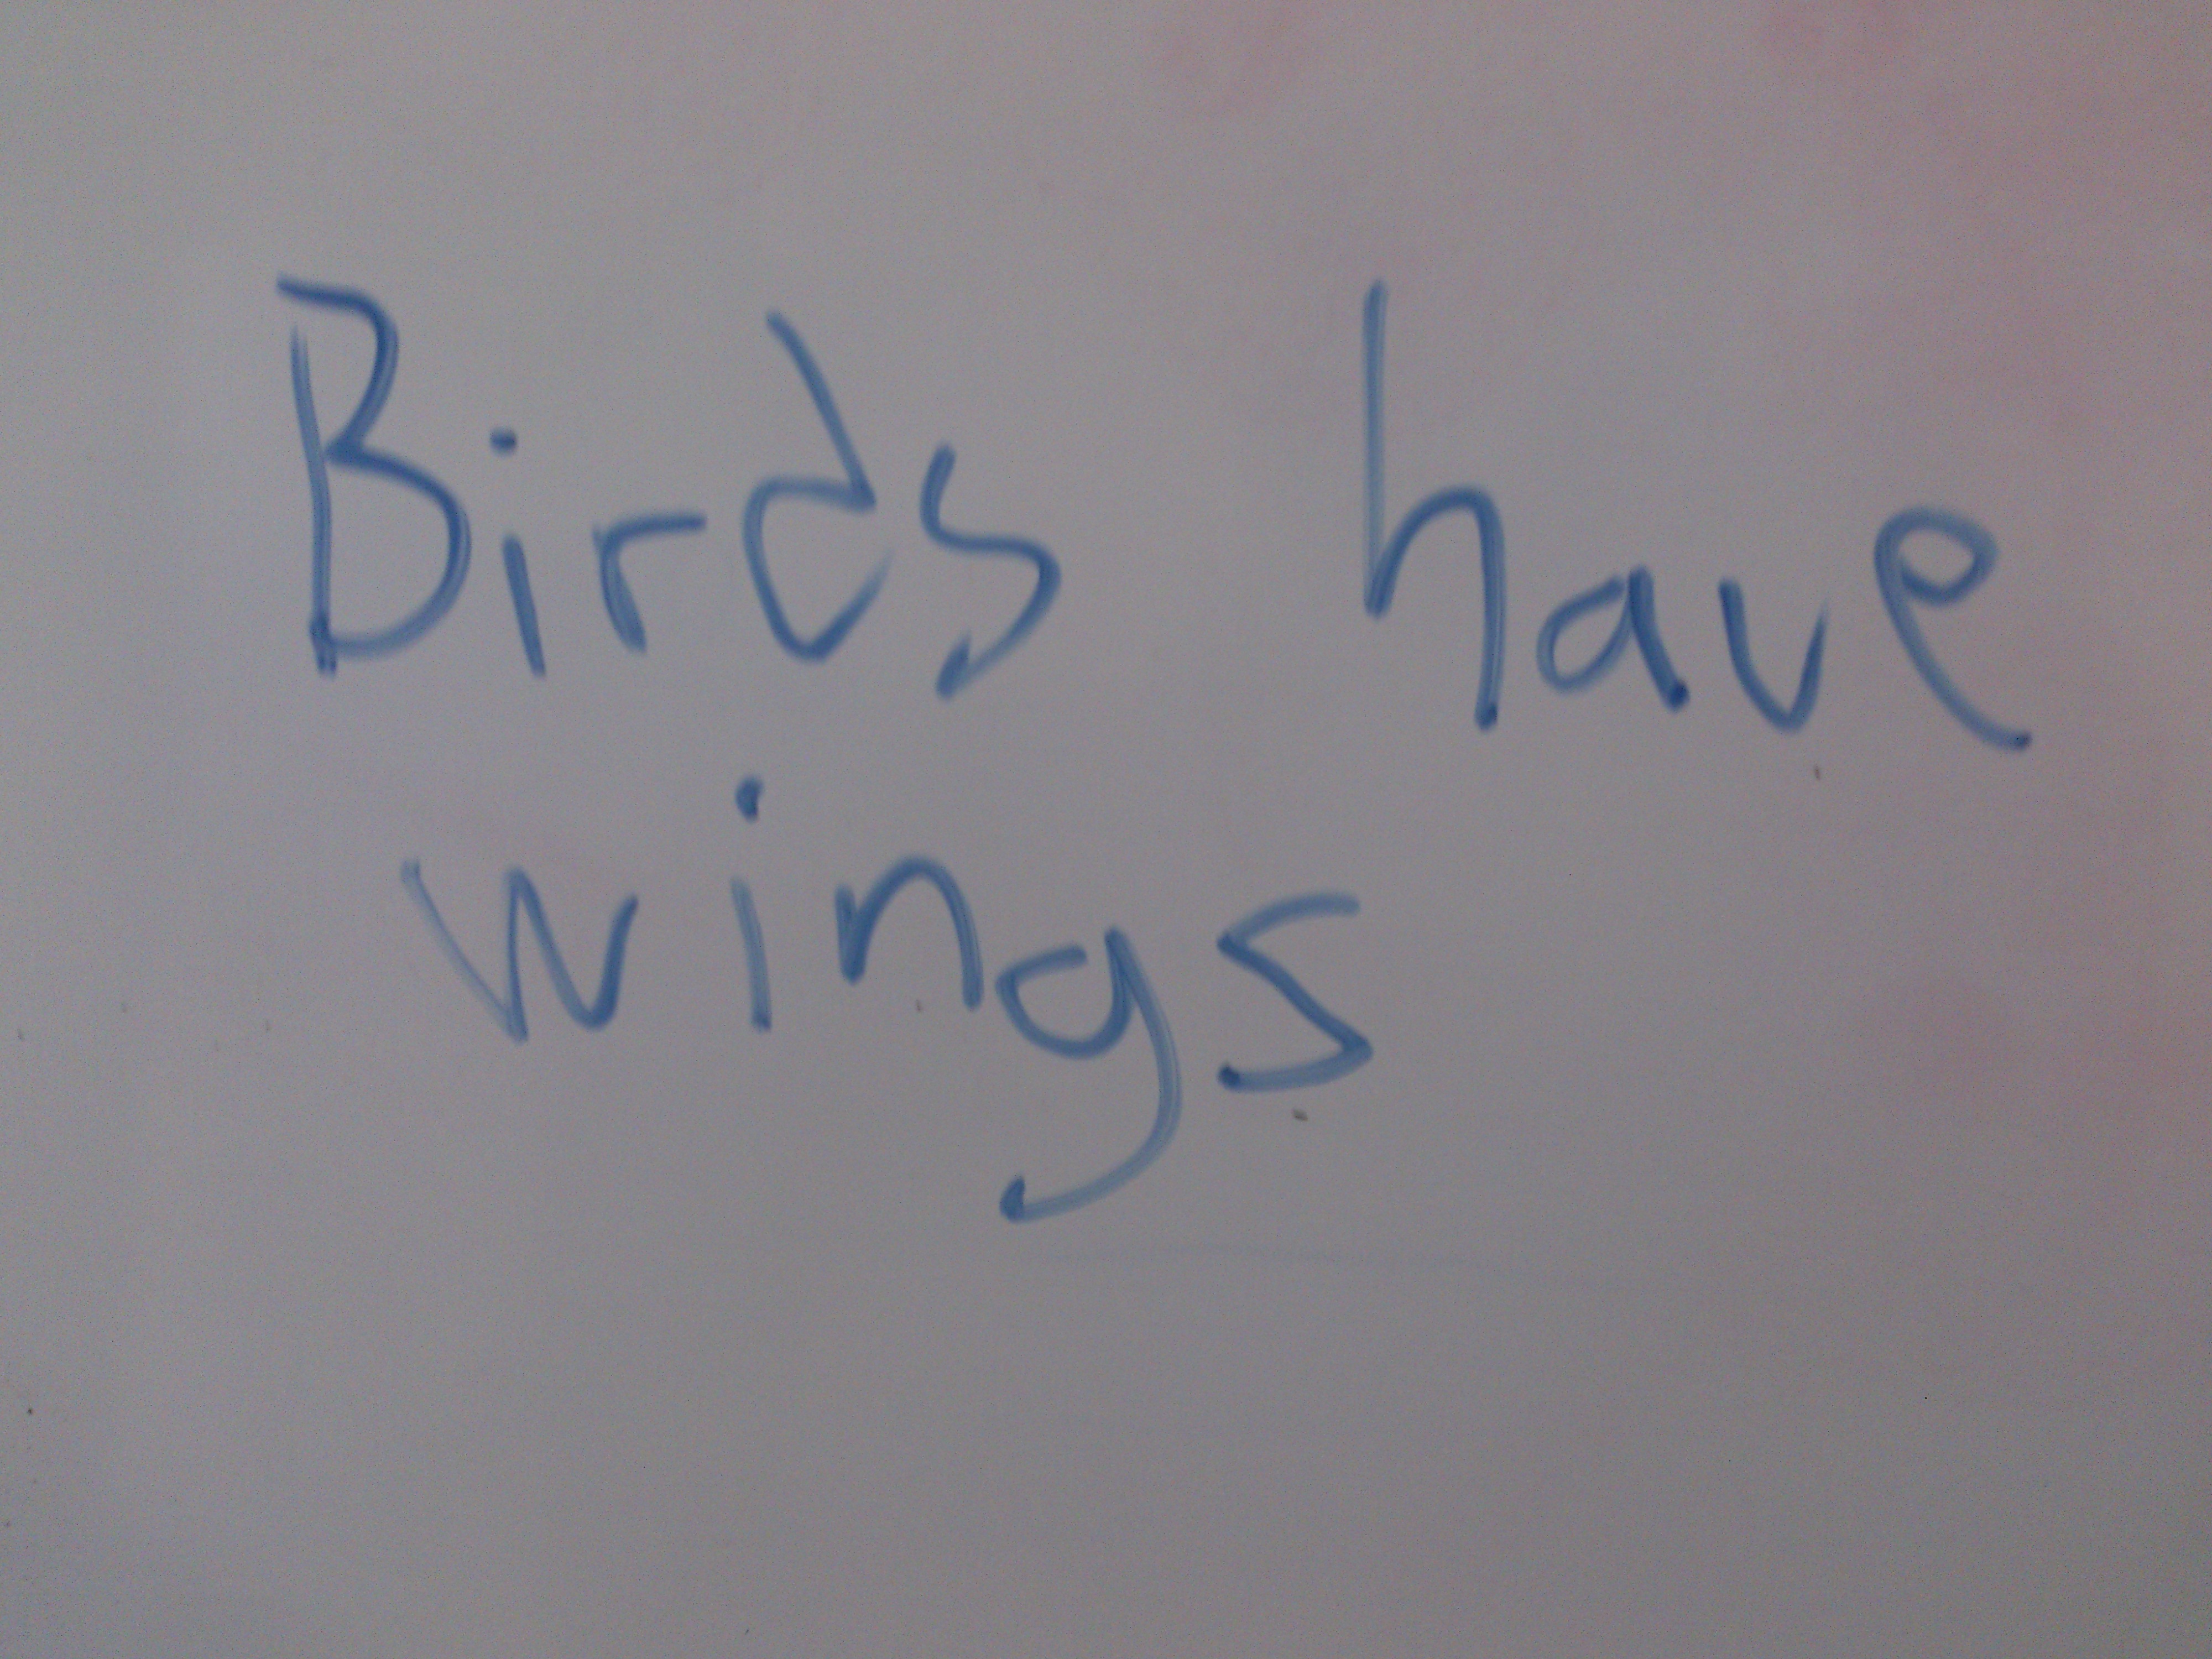 Birds have
wings